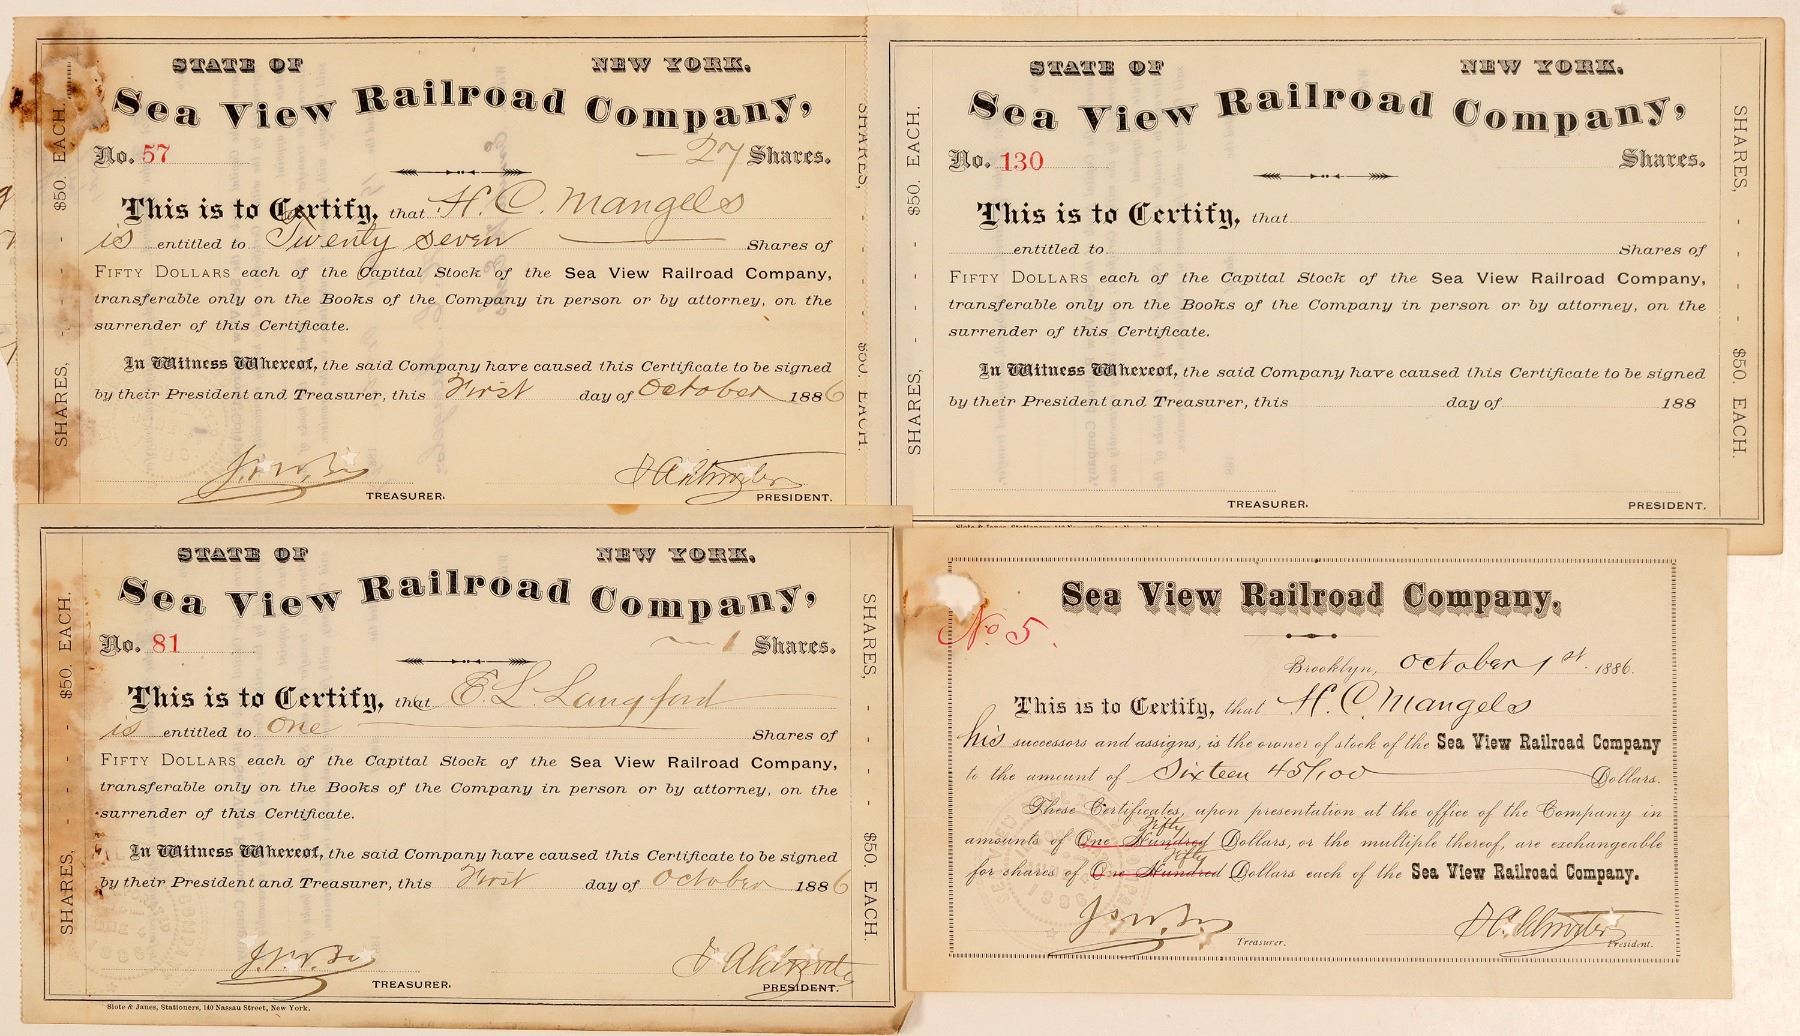 STATE OF NEW YORK.
Sea View Railroad Company,
No. 57 27 Shares.
This is to Certify, that H. C. Mangels
is entitled to Twenty seven Shares of
FIFTY DOLLARS each of the Capital Stock of the Sea View Railroad Company,
transferable only on the Books of the Company in person or by attorney, on the
surrender of this Certificate.
In Witness Whereof, the said Company have caused this Certificate to be signed
by their President and Treasurer, this First day of October 1886
TREASURER. PRESIDENT.
SHARES, - - - $50. EACH.
SHARES, - - - $50. EACH.
STATE OF NEW YORK.
Sea View Railroad Company,
No. 130 Shares.
This is to Certify, that
entitled to Shares of
FIFTY DOLLARS each of the Capital Stock of the Sea View Railroad Company,
transferable only on the Books of the Company in person or by attorney, on the
surrender of this Certificate.
In Witness Whereof, the said Company have caused this Certificate to be signed
by their President and Treasurer, this day of 188
TREASURER. PRESIDENT.
SHARES, - - - $50. EACH.
SHARES, - - - $50. EACH.
STATE OF NEW YORK.
Sea View Railroad Company,
No. 81 1 Shares.
This is to Certify, that E. L. Langford
is entitled to One Shares of
FIFTY DOLLARS each of the Capital Stock of the Sea View Railroad Company,
transferable only on the Books of the Company in person or by attorney, on the
surrender of this Certificate.
In Witness Whereof, the said Company have caused this Certificate to be signed
by their President and Treasurer, this First day of October 1886
TREASURER. PRESIDENT.
SHARES, - - - $50. EACH.
SHARES, - - - $50. EACH.
Slote & Janes, Stationers, 140 Nassau Street, New York.
Sea View Railroad Company.
No 5.
Brooklyn, October 1st. 1886.
This is to Certify, that H. C. Mangels
his successors and assigns, is the owner of stock of the Sea View Railroad Company
to the amount of Sixteen 45/100 Dollars.
These Certificates, upon presentation at the office of the Company in
Fifty
amounts of One Hundred Dollars, or the multiple thereof, are exchangeable
Fifty
for shares of One Hundred Dollars each of the Sea View Railroad Company.
Treasurer. President.